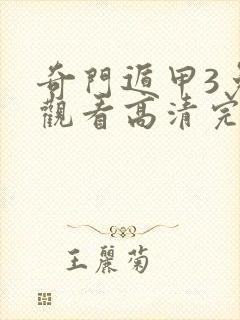 奇門遁甲3
觀看高清完
王麗菊